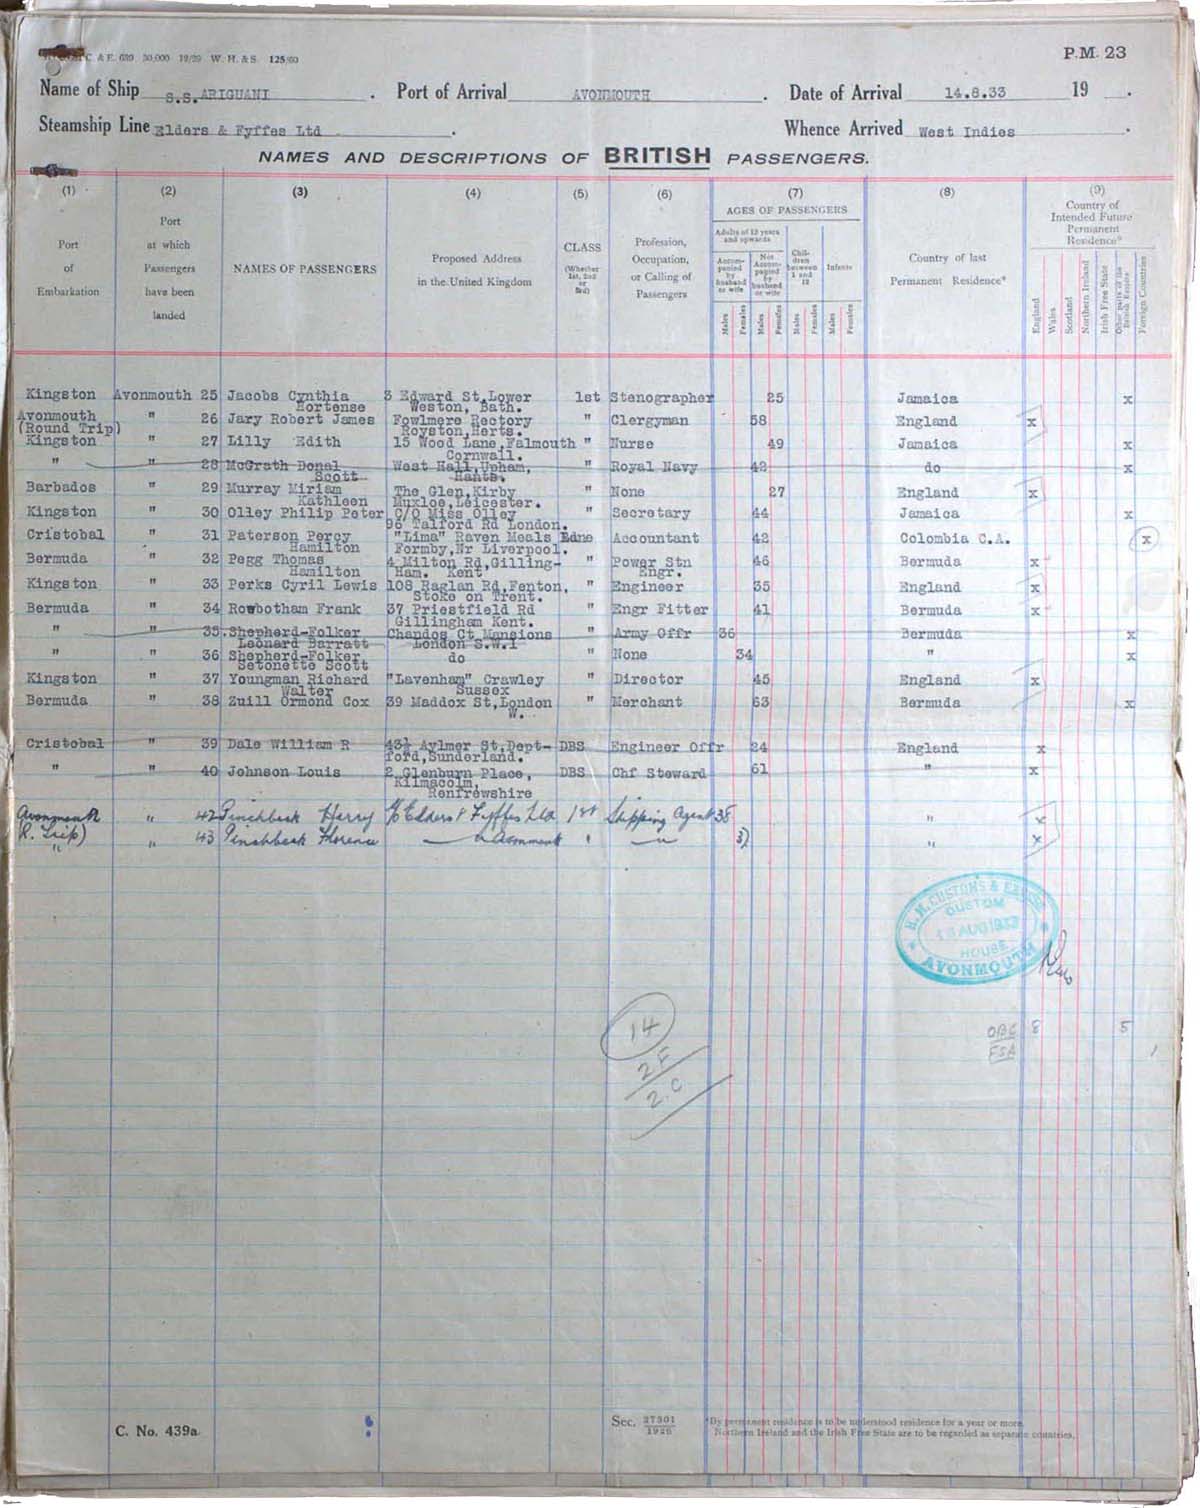 C. & E. 639 30,000 12/29 W. H. & S. 125/60
P.M. 23
Name of Ship S.S. ARIGUANI. Port of Arrival AVONMOUTH. Date of Arrival 14.8.33 19 .
Steamship Line Elders & Fyffes Ltd. Whence Arrived West Indies.
NAMES AND DESCRIPTIONS OF BRITISH PASSENGERS.
(1) (2) (3) (4) (5) (6) (7) (8) (9)
Port of Embarkation
Port at which Passengers have been landed
NAMES OF PASSENGERS
Proposed Address in the United Kingdom
CLASS (Whether 1st, 2nd or 3rd)
Profession, Occupation, or Calling of Passengers
AGES OF PASSENGERS
Adults of 12 years and upwards
Accompanied by husband or wife
Not Accompanied by husband or wife
Children between 1 and 12
Infants
Males Females Males Females Males Females Males Females
Country of last Permanent Residence*
Country of Intended Future Permanent Residence*
England Wales Scotland Northern Ireland Irish Free State Other parts of the British Empire Foreign Countries
Kingston Avonmouth 25 Jacobs Cynthia 3 Edward St, Lower 1st Stenographer 25 Jamaica x
Hortense Weston, Bath.
Avonmouth " 26 Jary Robert James Fowlmere Rectory " Clergyman 58 England x
(Round Trip) Royston, Herts.
Kingston " 27 Lilly Edith 15 Wood Lane, Falmouth " Nurse 49 Jamaica x
Cornwall.
" " 28 McGrath Donal West Hall, Upham, " Royal Navy 42 do x
Scott Hants.
Barbados " 29 Murray Miriam The Glen, Kirby " None 27 England x
Kathleen Muxloe, Leicester.
Kingston " 30 Olley Philip Peter C/O Miss Olley " Secretary 44 Jamaica x
96 Talford Rd London.
Cristobal " 31 Paterson Percy "Lima" Raven Meals Ldne Accountant 42 Colombia C.A. x
Hamilton Formby, Nr Liverpool.
Bermuda " 32 Pegg Thomas 4 Milton Rd, Gilling- " Power Stn 46 Bermuda x
Hamilton Ham. Kent Engr.
Kingston " 33 Perks Cyril Lewis 108 Raglan Rd, Fenton, " Engineer 35 England x
Stoke on Trent.
Bermuda " 34 Rowbotham Frank 37 Priestfield Rd " Engr Fitter 41 Bermuda x
Gillingham Kent.
" " 35. Shepherd-Folker Chandos Ct Mansions " Army Offr 36 Bermuda x
Leonard Barratt London S.W.1
" " 36 Shepherd-Folker do " None 34 " x
Setonette Scott
Kingston " 37 Youngman Richard "Lavenham" Crawley " Director 45 England x
Walter Sussex
Bermuda " 38 Zuill Ormond Cox 39 Maddox St, London " Merchant 63 Bermuda x
W.
Cristobal " 39 Dale William R 43½ Aylmer St, Dept- DBS Engineer Offr 24 England x
ford, Sunderland.
" " 40 Johnson Louis 2 Glenburn Place, DBS Chf Steward 61 " x
Kilmacolm,
Renfrewshire
Avonmouth " 42 Pinchbeck Harry c/o Elders & Fyffes Ltd 1st Shipping Agent 38 " x
R. Trip)
" " 43 Pinchbeck Florence Avonmouth " " " x
H. M. CUSTOMS & EXCISE
CUSTOM
AUG 1933
HOUSE
AVONMOUTH
14
2 F
2. C
OBE 8 5
FSA 1
C. No. 439a.
Sec. 27301/1926
*By permanent residence is to be understood residence for a year or more.
Northern Ireland and the Irish Free State are to be regarded as separate countries.